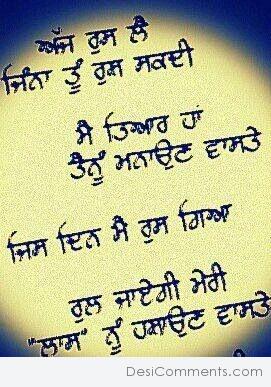 ਅੱਜ ਰੁਸ ਲੈ
ਜਿੰਨਾ ਤੂੰ ਰੁਸ ਸਕਦੀ
ਮੈ ਤਿਆਰ ਹਾਂ
ਤੈਨੂੰ ਮਨਾਉਣ ਵਾਸਤੇ
ਜਿਸ ਦਿਨ ਮੈ ਰੁਸ ਗਿਆ
ਰੁਲ ਜਾਏਗੀ ਮੇਰੀ
"ਲਾਸ" ਨੂੰ ਹਸਾਉਣ ਵਾਸਤੇ
DesiComments.com